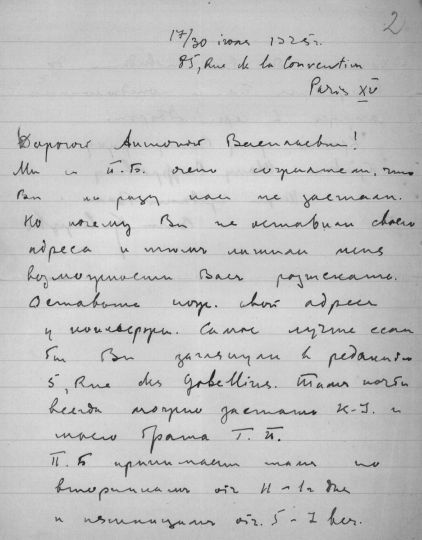 2
17/30 июня 1925 г.
85, Rue de la Convention
Paris XV
Дорогой Антоний Васильевич!
Мы с П.Б. очень сожалели, что
Вы ни разу нас не застали.
Но почему Вы не оставили своего
адреса и этимъ лишили меня
возможности Васъ разыскать.
Оставьте пож. свой адресъ
у консьержки. Самое лучшее если
бы Вы заглянули в редакцию
5, Rue des Gobelins. Тамъ почти
всегда можно застать К. І. и
моего брата Г. П.
П. Б принимает там по
вторникамъ от 11 - 12 дня
и пятницамъ от. 5 - 7 веч.